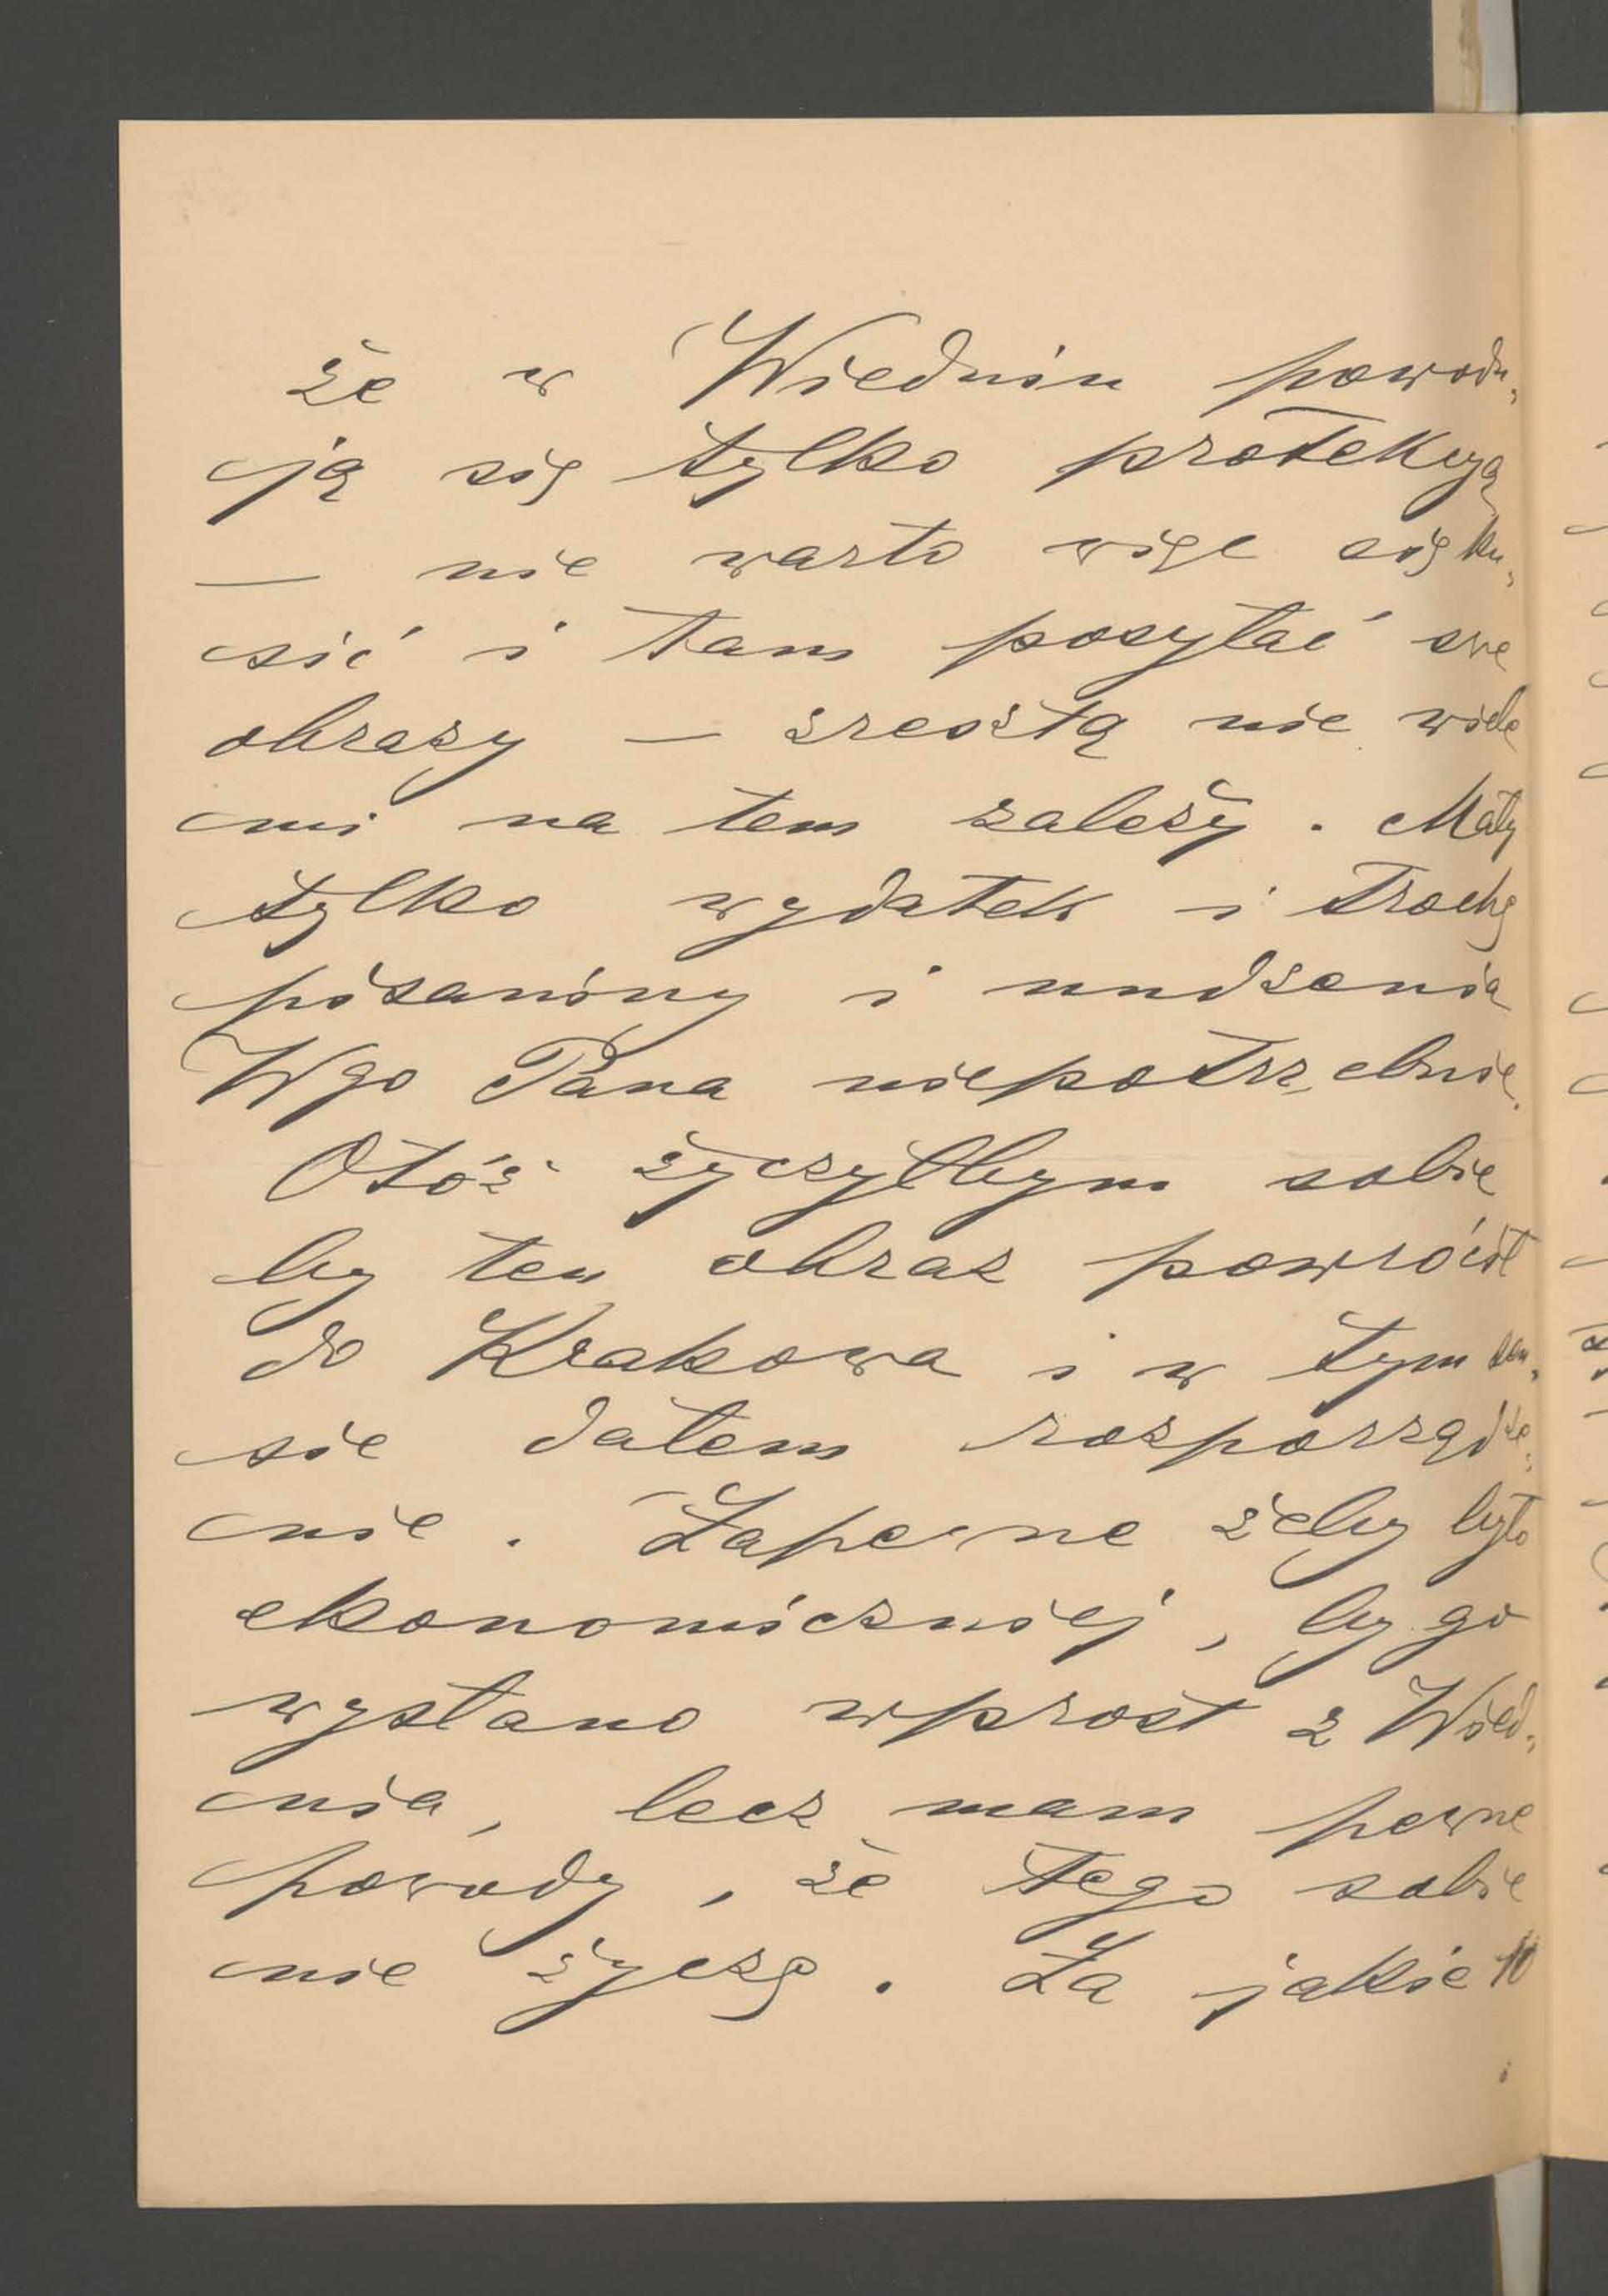 że w Wiedniu powodu„
ją się tylko protekcyą
— nie warto więc się ku„
sić i tam posyłać swe
obrazy — zresztą nie wiele
mi na tem zależy. Mały
tylko wydatek i trochę
pisaniny i nudzenia
Wgo Pana niepotrzebnie.
Otóż życzyłbym sobie
by ten obraz powrócił
do Krakowa i w tym sen„
sie dałem rozporządze„
nie. Zapewne żeby było
ekonomiczniej, by go
wysłano wprost z Wied„
nia, lecz mam pewne
powody, że tego sobie
nie życzę. Za jakie 10